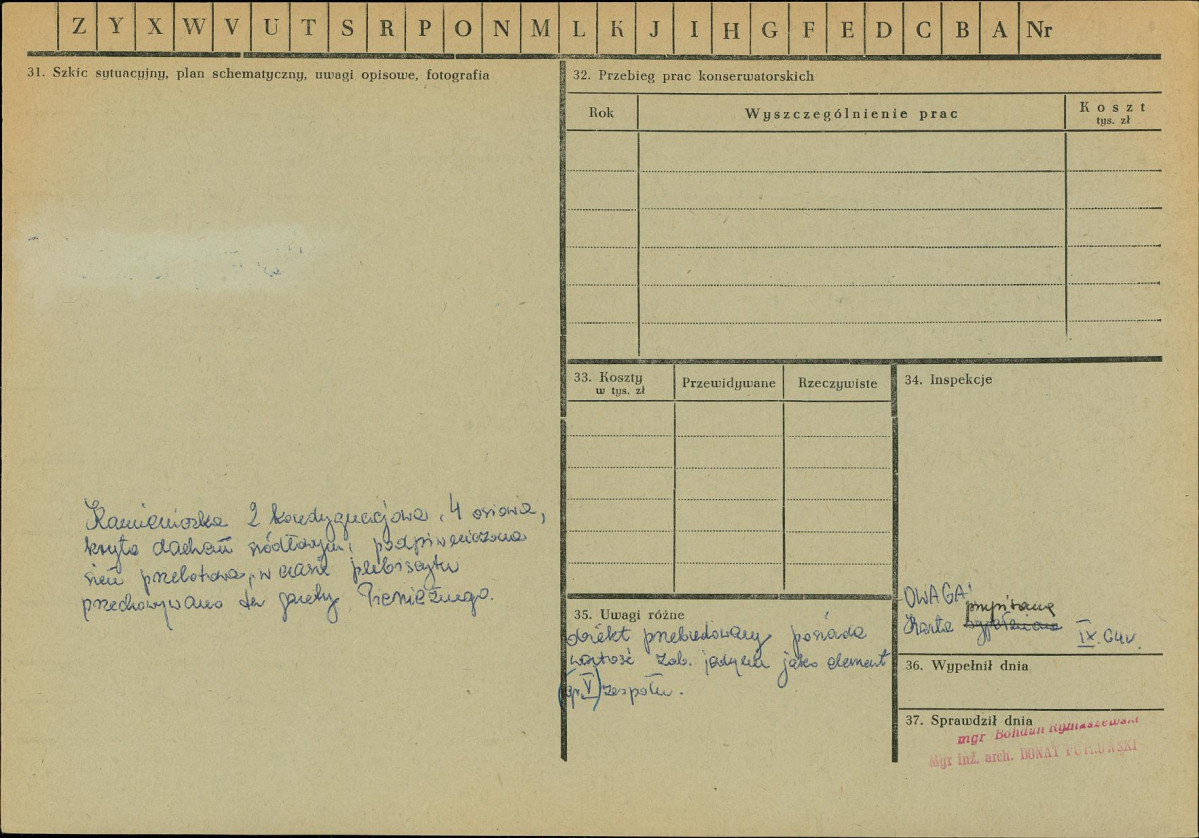 Z Y X W V U T S R P O N M L K J I H G F E D C B A Nr
31. Szkic sytuacyjny, plan schematyczny, uwagi opisowe, fotografia
Kamieniczka 2 kondygnacjowa, 4 osiowa,
kryta dachem siodłowym, podpiwniczona
sień przelotowa, w czasie plebiscytu
przechowywano tu gazety Pieniężnego.
32. Przebieg prac konserwatorskich
Rok Wyszczególnienie prac Koszt
tys. zł
33. Koszty
w tys. zł
Przewidywane Rzeczywiste
34. Inspekcje
UWAGA!
przepisana
Karta
IX. 64r.
35. Uwagi różne
obiekt przebudowany posiada
wartość zab. jedynie jako element
(gr. V) zespołu.
36. Wypełnił dnia
37. Sprawdził dnia
mgr Bohdan Rymaszewski
Mgr inż. arch. DONAT